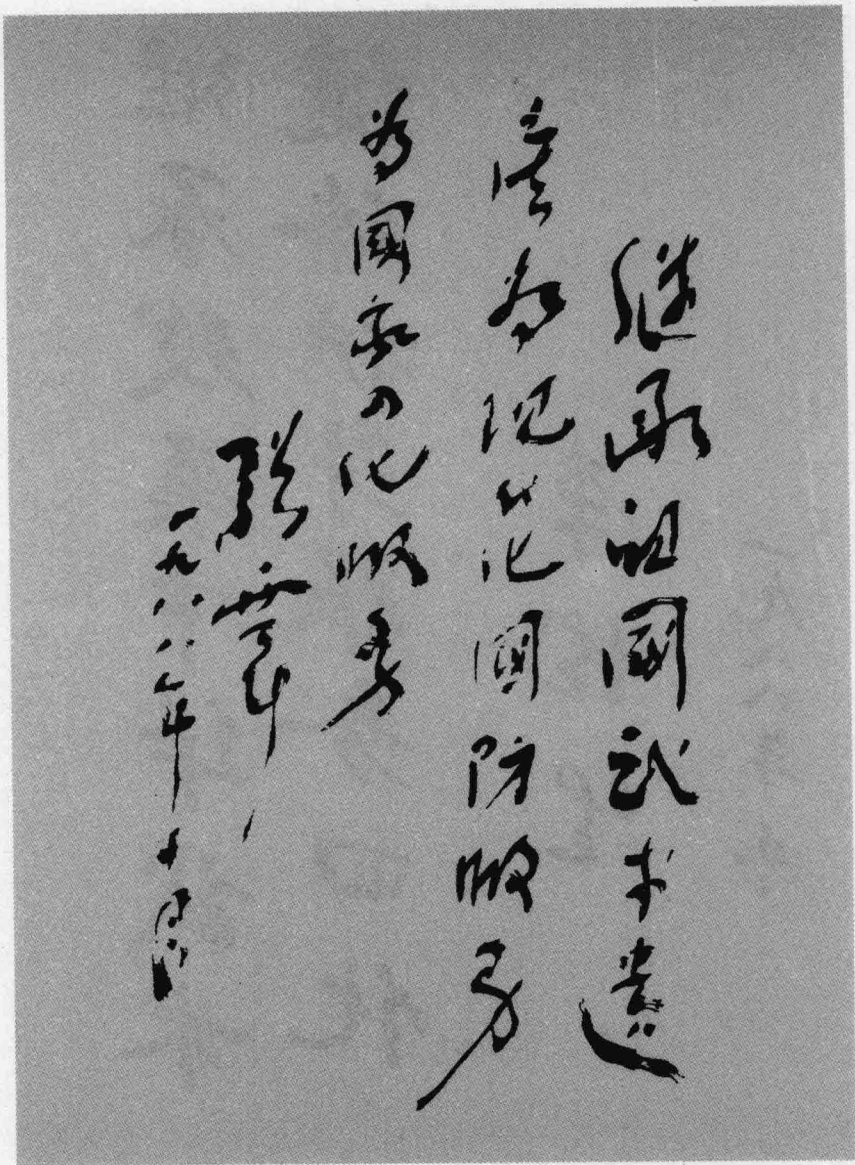 继承祖國武术遗
产为现代化國防服务
为國家四化服务
张震
一九八八年十月